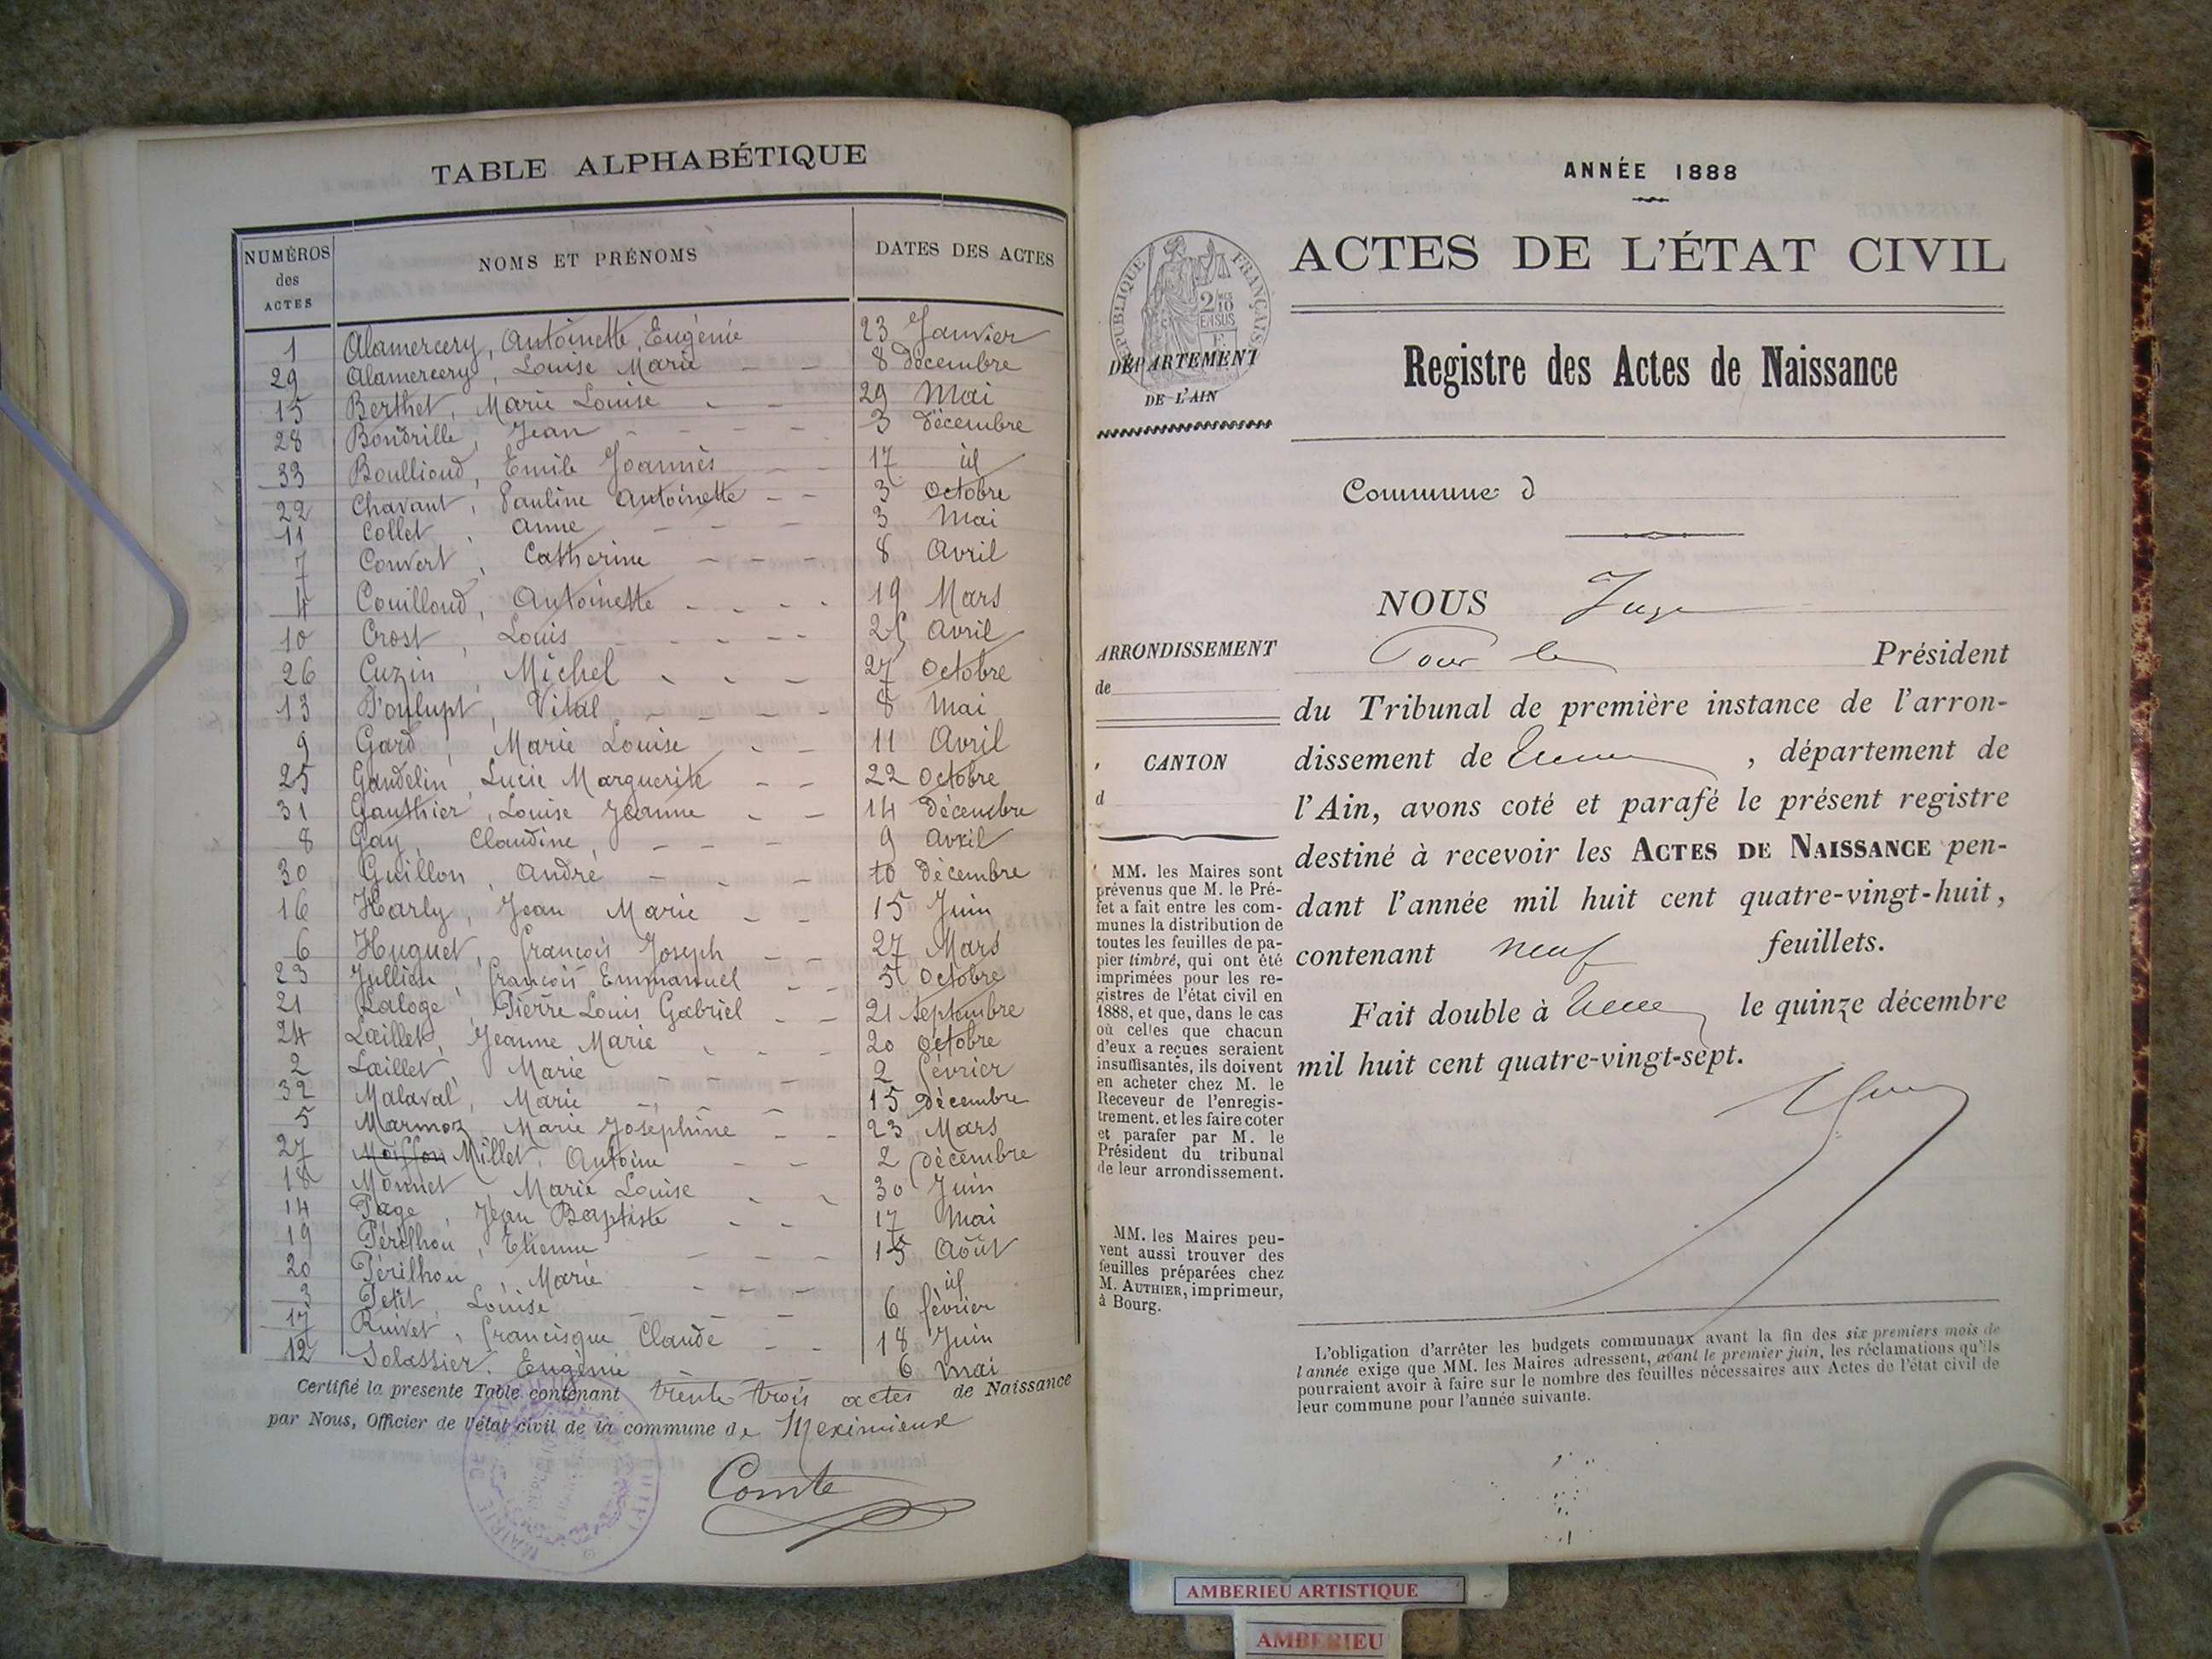 TABLE ALPHABÉTIQUE
NUMÉROS des ACTES NOMS ET PRÉNOMS DATES DES ACTES
1 Alamercery, Antoinette Eugénie 23 Janvier
29 Alamercery, Louise Marie 8 décembre
15 Berthet, Marie Louise 29 Mai
28 Bondrille, Jean 3 décembre
33 Boullioud, Emile Joannès 17 id
22 Chavant, Pauline Antoinette 3 Octobre
11 Collet, Anne 3 Mai
7 Convert, Catherine 8 Avril
4 Couilloud, Antoinette 19 Mars
10 Crost, Louis 25 Avril
26 Cuzin, Michel 27 Octobre
13 Vital 8 Mai
9 Gard, Marie Louise 11 Avril
25 Gandelin, Lucie Marguerite 22 Octobre
31 Gauthier, Louise Jeanne 14 Décembre
8 Gay, Claudine, 9 Avril
30 Guillon, André 10 Décembre
16 Harly, Jean Marie 15 Juin
6 Huguet, François Joseph 27 Mars
23 Jullien, François Emmanuel 5 Octobre
21 Laloge, Pierre Louis Gabriel 21 Septembre
24 Lœillet, Jeanne Marie 20 Octobre
2 Lœillet, Marie 2 février
32 Malaval, Marie 15 Décembre
5 Marmoz, Marie Joséphine 23 Mars
27 Millet, Antoine 2 Décembre
18 Monnet, Marie Louise 30 Juin
14 Page, Jean Baptiste 17 Mai
19 Périlhou, Etienne 15 Août
20 Périlhou, Marie id
3 Petit, Louise 6 février
17 Ruivet, Francisque Claude 18 Juin
12 Solassier, Eugénie 6 Mai
Certifié la presente Table contenant trente trois actes de Naissance
par Nous, Officier de l'état civil de la commune de Meximieux
Comte
MAIRIE
ANNÉE 1888
ACTES DE L'ÉTAT CIVIL
Registre des Actes de Naissance
RÉPUBLIQUE FRANÇAISE
2/10 EN SUS
DÉPARTEMENT
DE L'AIN
Commune d
ARRONDISSEMENT
de
CANTON
d
NOUS Juge
Pour le Président
du Tribunal de première instance de l'arron-
dissement de , département de
l'Ain, avons coté et parafé le présent registre
destiné à recevoir les ACTES DE NAISSANCE pen-
dant l'année mil huit cent quatre-vingt-huit,
contenant neuf feuillets.
Fait double à le quinze décembre
mil huit cent quatre-vingt-sept.
MM. les Maires sont
prévenus que M. le Pré-
fet a fait entre les com-
munes la distribution de
toutes les feuilles de pa-
pier timbré, qui ont été
imprimées pour les re-
gistres de l'état civil en
1888, et que, dans le cas
où celles que chacun
d'eux a reçues seraient
insuffisantes, ils doivent
en acheter chez M. le
Receveur de l'enregis-
trement, et les faire coter
et parafer par M. le
Président du tribunal
de leur arrondissement.
MM. les Maires peu-
vent aussi trouver des
feuilles préparées chez
M. AUTHIER, imprimeur,
à Bourg.
L'obligation d'arrêter les budgets communaux avant la fin des six premiers mois de
l'année exige que MM. les Maires adressent, avant le premier juin, les réclamations qu'ils
pourraient avoir à faire sur le nombre des feuilles nécessaires aux Actes de l'état civil de
leur commune pour l'année suivante.
AMBERIEU ARTISTIQUE
AMBERIEU